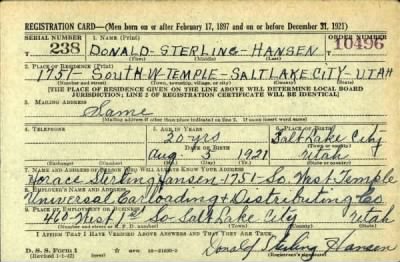 REGISTRATION CARD—(Men born on or after February 17, 1897 and on or before December 31, 1921)
SERIAL NUMBER 1. NAME (Print) ORDER NUMBER
238 DONALD-STERLING-HANSEN 10496
(First) (Middle) (Last)
2. PLACE OF RESIDENCE (Print)
1751- SOUTH-W-TEMPLE-SALT LAKE CITY-UTAH
(Number and street) (Town, township, village, or city) (County) (State)
[THE PLACE OF RESIDENCE GIVEN ON THE LINE ABOVE WILL DETERMINE LOCAL BOARD
JURISDICTION; LINE 2 OF REGISTRATION CERTIFICATE WILL BE IDENTICAL]
3. MAILING ADDRESS
Same
[Mailing address if other than place indicated on line 2. If same insert word same]
4. TELEPHONE 5. AGE IN YEARS 6. PLACE OF BIRTH
20-yrs Salt Lake City
DATE OF BIRTH (Town or county)
Aug 3 1921 Utah
(Exchange) (Number) (Mo.) (Day) (Yr.) (State or country)
7. NAME AND ADDRESS OF PERSON WHO WILL ALWAYS KNOW YOUR ADDRESS
Horace Sterling Hansen-1751-So. West Temple
8. EMPLOYER'S NAME AND ADDRESS
Universal Carloading & Distributing Co.
9. PLACE OF EMPLOYMENT OR BUSINESS
460-West 1st So-Salt Lake City Utah
(Number and street or R. F. D. number) (Town) (County) (State)
I AFFIRM THAT I HAVE VERIFIED ABOVE ANSWERS AND THAT THEY ARE TRUE.
D. S. S. Form 1
(Revised 1-1-42) (over) Donald Sterling Hansen
(Registrant's signature)